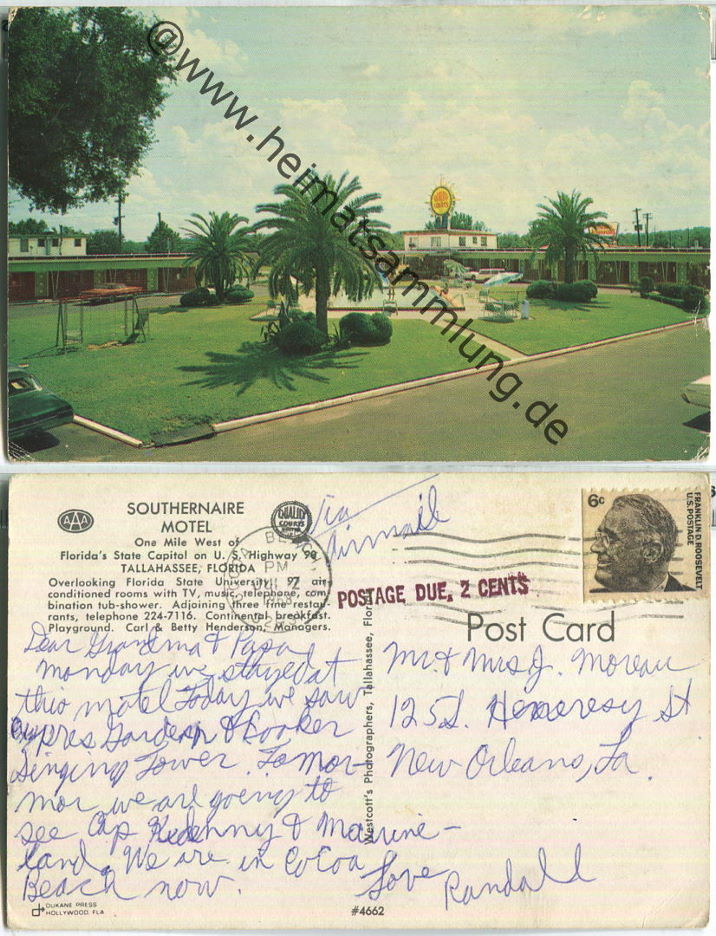 @www.heimatsammlung.de
QUALITY COURTS
AAA
SOUTHERNAIRE
MOTEL
One Mile West of
Florida's State Capitol on U. S. Highway 90
TALLAHASSEE, FLORIDA
Overlooking Florida State University. 97 air-
conditioned rooms with TV, music, telephone, com
bination tub-shower. Adjoining three fine restau-
rants, telephone 224-7116. Continental breakfast.
Playground. Carl & Betty Henderson, Managers.
QUALITY
COURTS
PM
Via
Airmail
POSTAGE DUE, 2 CENTS
6c
FRANKLIN D. ROOSEVELT
U.S. POSTAGE
Post Card
Dear Grandma & Papa
Monday we stayed at
this motel Today we saw
Cypres Gardens & Booker
Singing Tower. Tomor-
mor we are going to
see Cap Kedenny & Marine-
land. We are in CoCoa
Beach now.
Love
Randall
Mr. & Mrs J. Moreau
125 S. Hennesey St
New Orleans, La.
Westcott's Photographers, Tallahassee, Florida
DUKANE PRESS
HOLLYWOOD, FLA
#4662